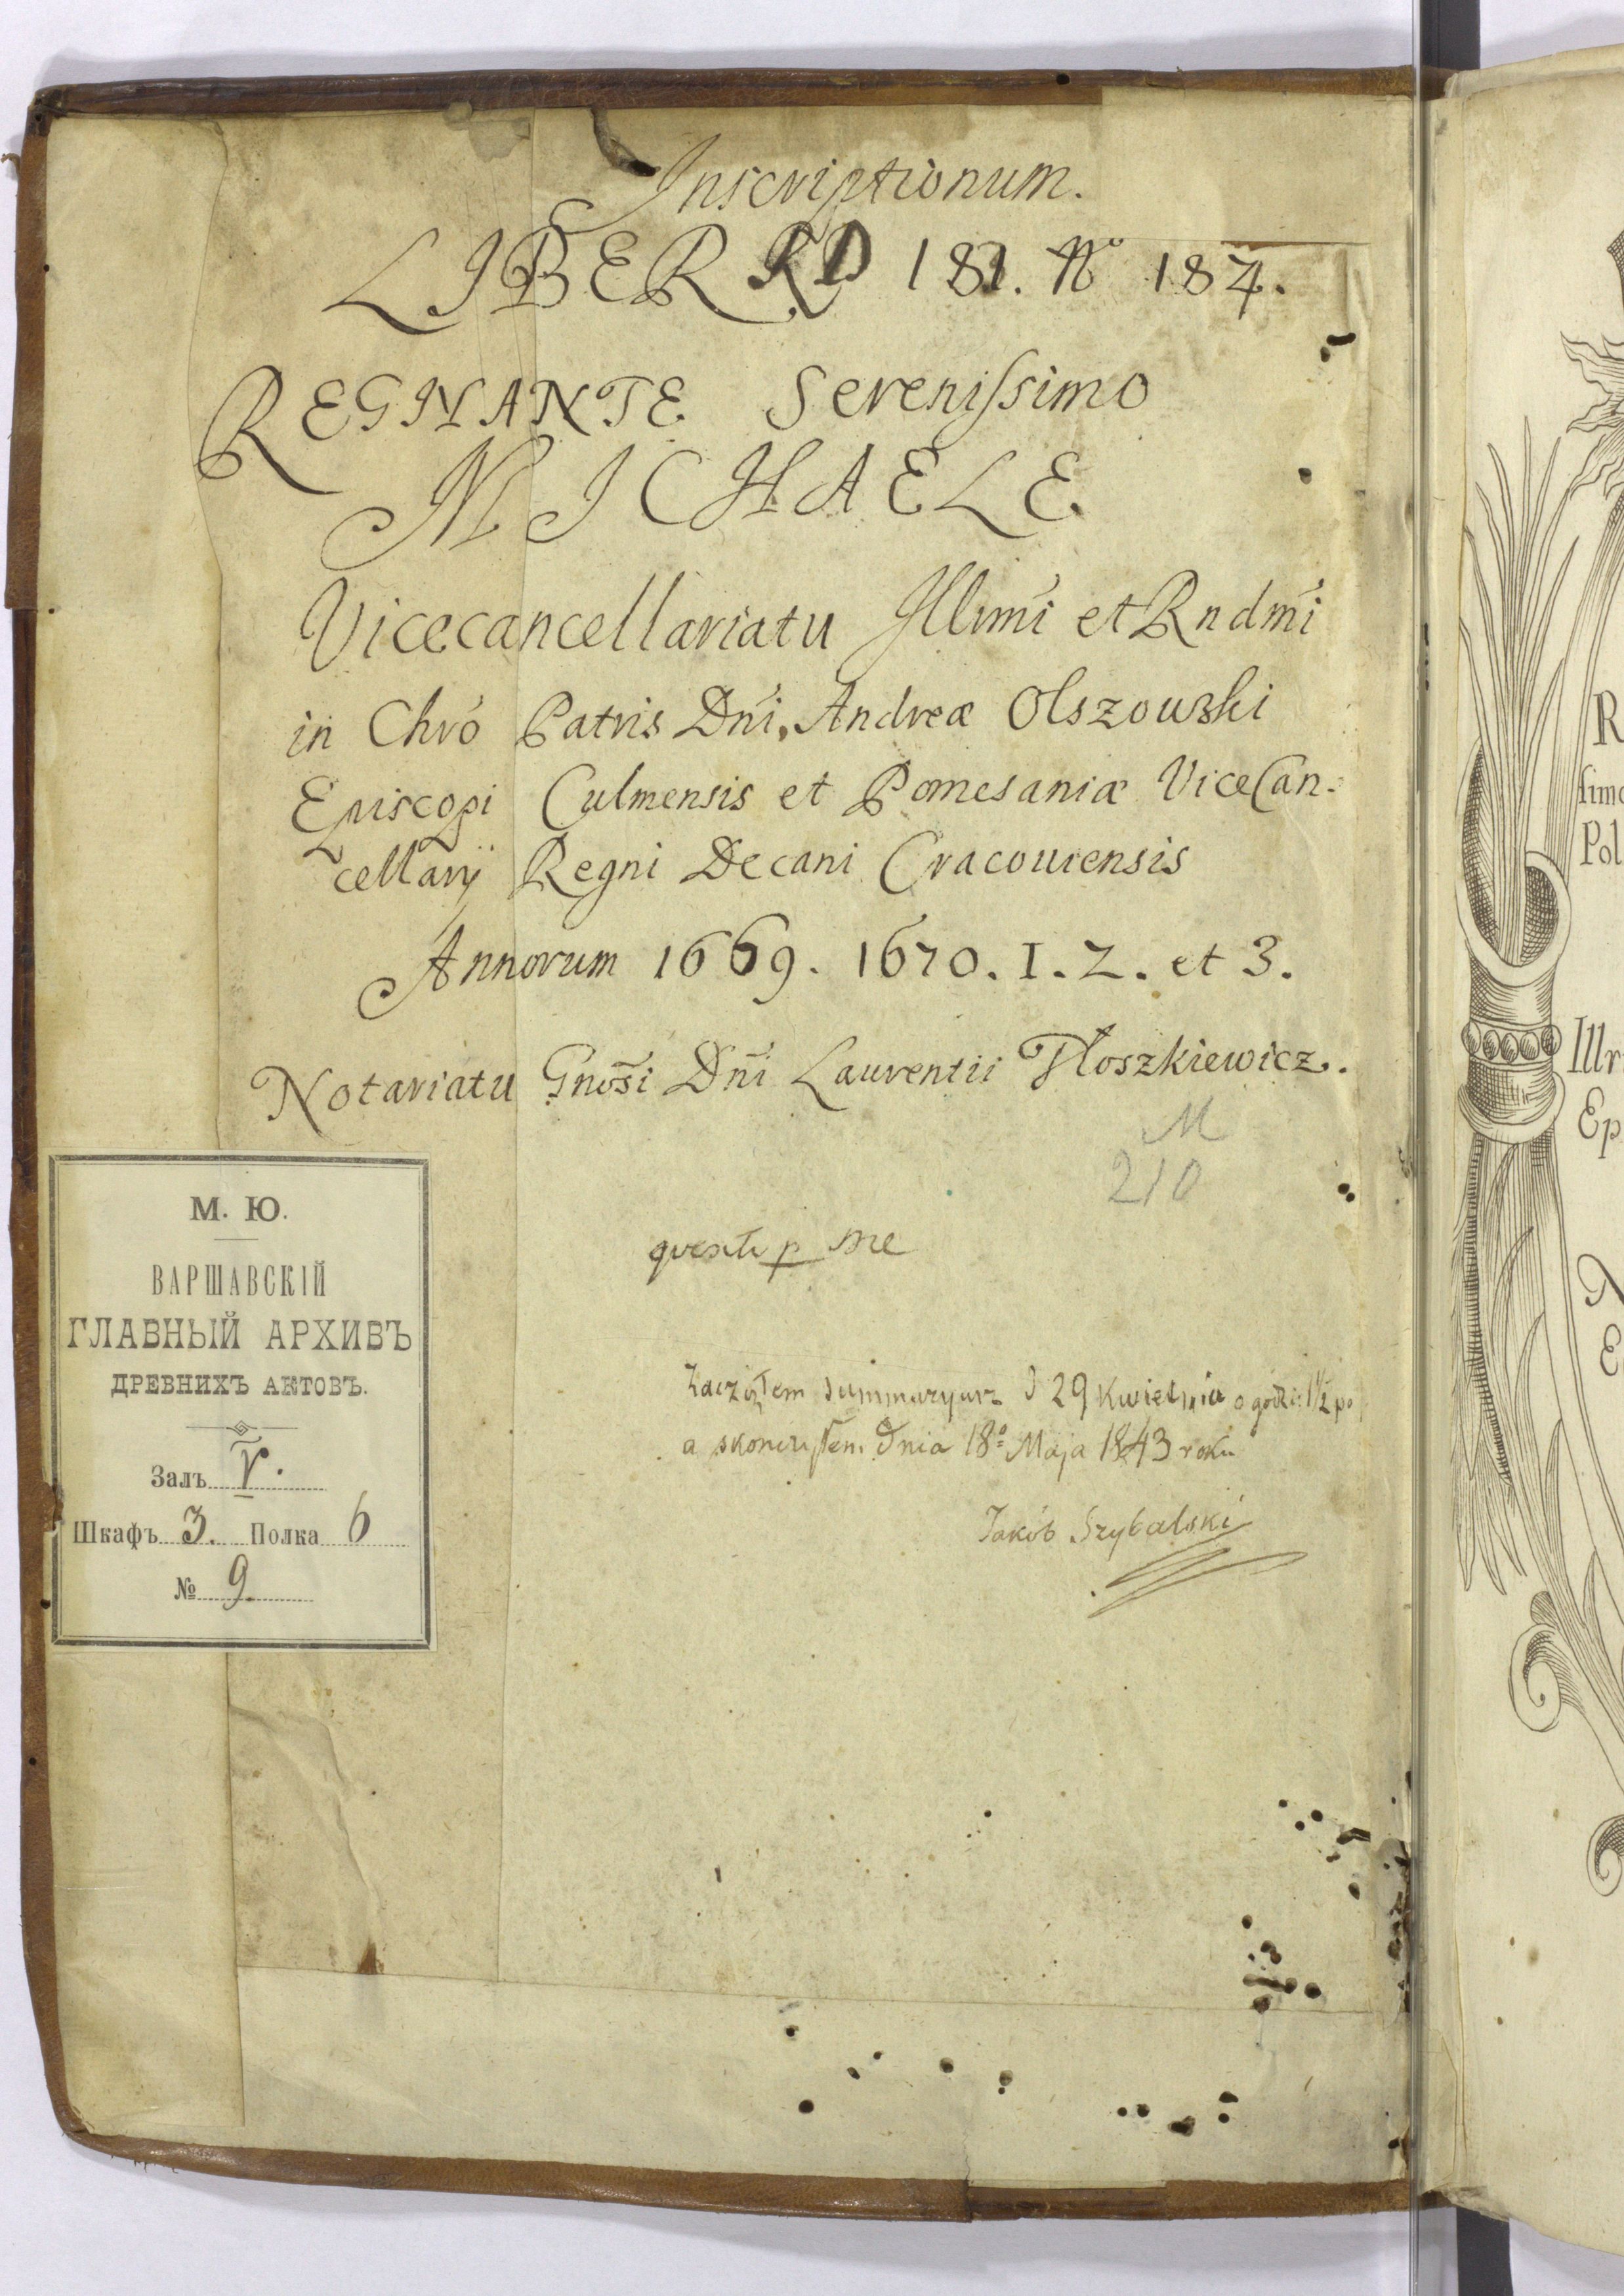 Inscriptionum.
LIBER RD 181. No 187.
REGNANTE Serenissimo
MICHAELE
Vicecancellariatu Illrmi et Rndmi
in Chro Patris Dni, Andreæ Olszouski
Episcopi Culmensis et Pomesaniæ ViceCan-
cellarij Regni Decani Cracouiensis
Annorum 1669. 1670. 1. 2. et 3.
Notariatu Gnosi Dni Laurentii Płoszkiewicz.
M
210
М. Ю.
ВАРШАВСКІЙ
ГЛАВНЫЙ АРХИВЪ
ДРЕВНИХЪ АКТОВЪ.
Залъ V.
Шкафъ 3. Полка 6
№ 9.
p me
Zacząłem summaryusz d 29 Kwietnia o godzi: 1½ po
a skonczyłem dnia 18o Maja 1843 roku
Jakób Szybalski
R
simo
Pol
Illr
Ep
N
E